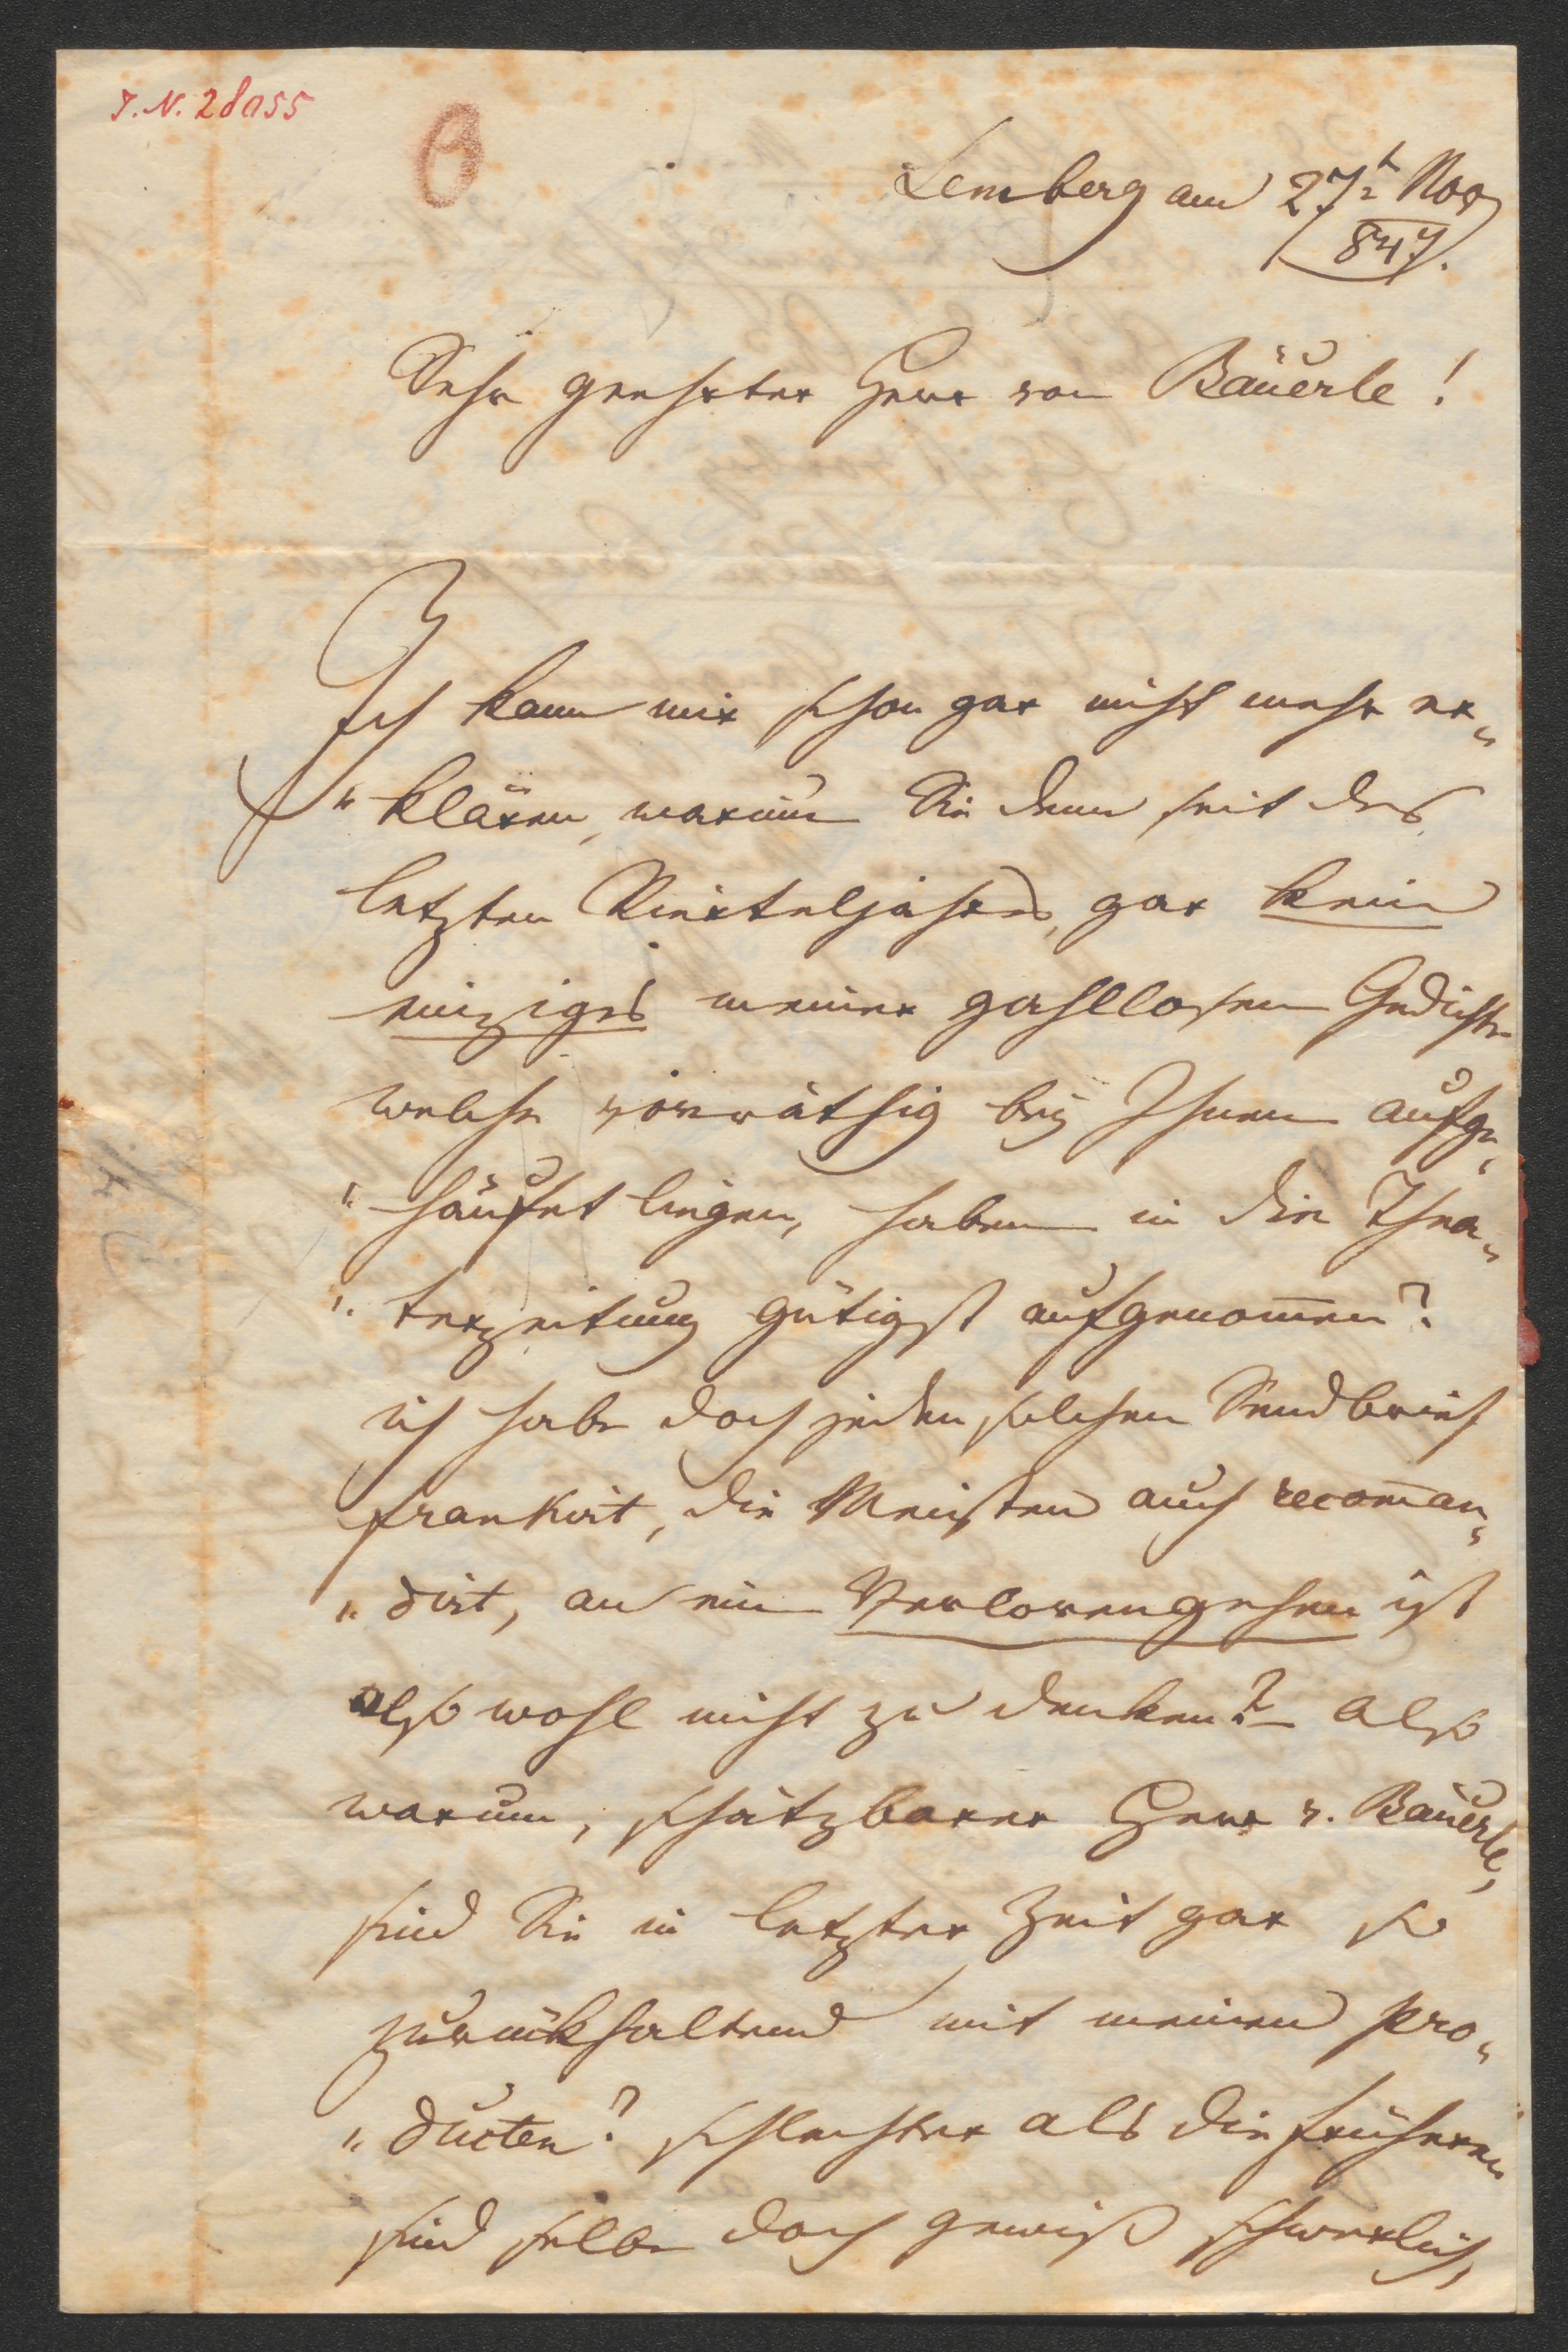 I.N. 28055
Lemberg am 27t Nov
847.
Sehr geehrter Herr von Bäuerle!
Ich kann mir schon gar nicht mehr er„
„klären, warum Sie denn seit des
letzten Vierteljahres, gar kein
einziges meiner zahllosen Gedichte
welche vorräthig bey Ihnen aufge„
„häufet liegen, haben in die Thea„
„terzeitung gütigst aufgenom̄en?
ich habe doch jeden solchen Sendbrief
frankirt, die Meisten auch recom̄an„
„dirt, an ein Verlorengehen ist
also wohl nicht zu denken? – Also
warum, schätzbarer Herr v. Bäuerle,
sind Sie in letzter Zeit gar so
zurückhaltend mit meinen Pro„
„ducten? schlechter als die früheren
sind selbe doch gewiß schwerlich,